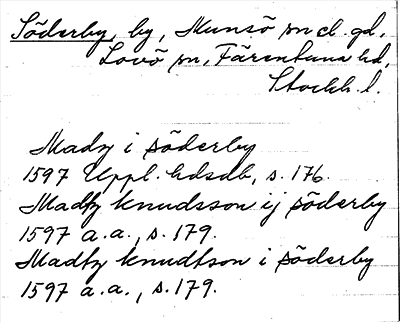 Söderby, by, Munsö sn cl. gd,
Lovö sn, Färentuna hd,
Stockh. l.
Madz i söderby
1597 Uppl. hdsdb, s. 176.
Madtz knudsson ij söderby
1597 a.a., s. 179.
Madtz knudtson i söderby
1597 a.a., s. 179.